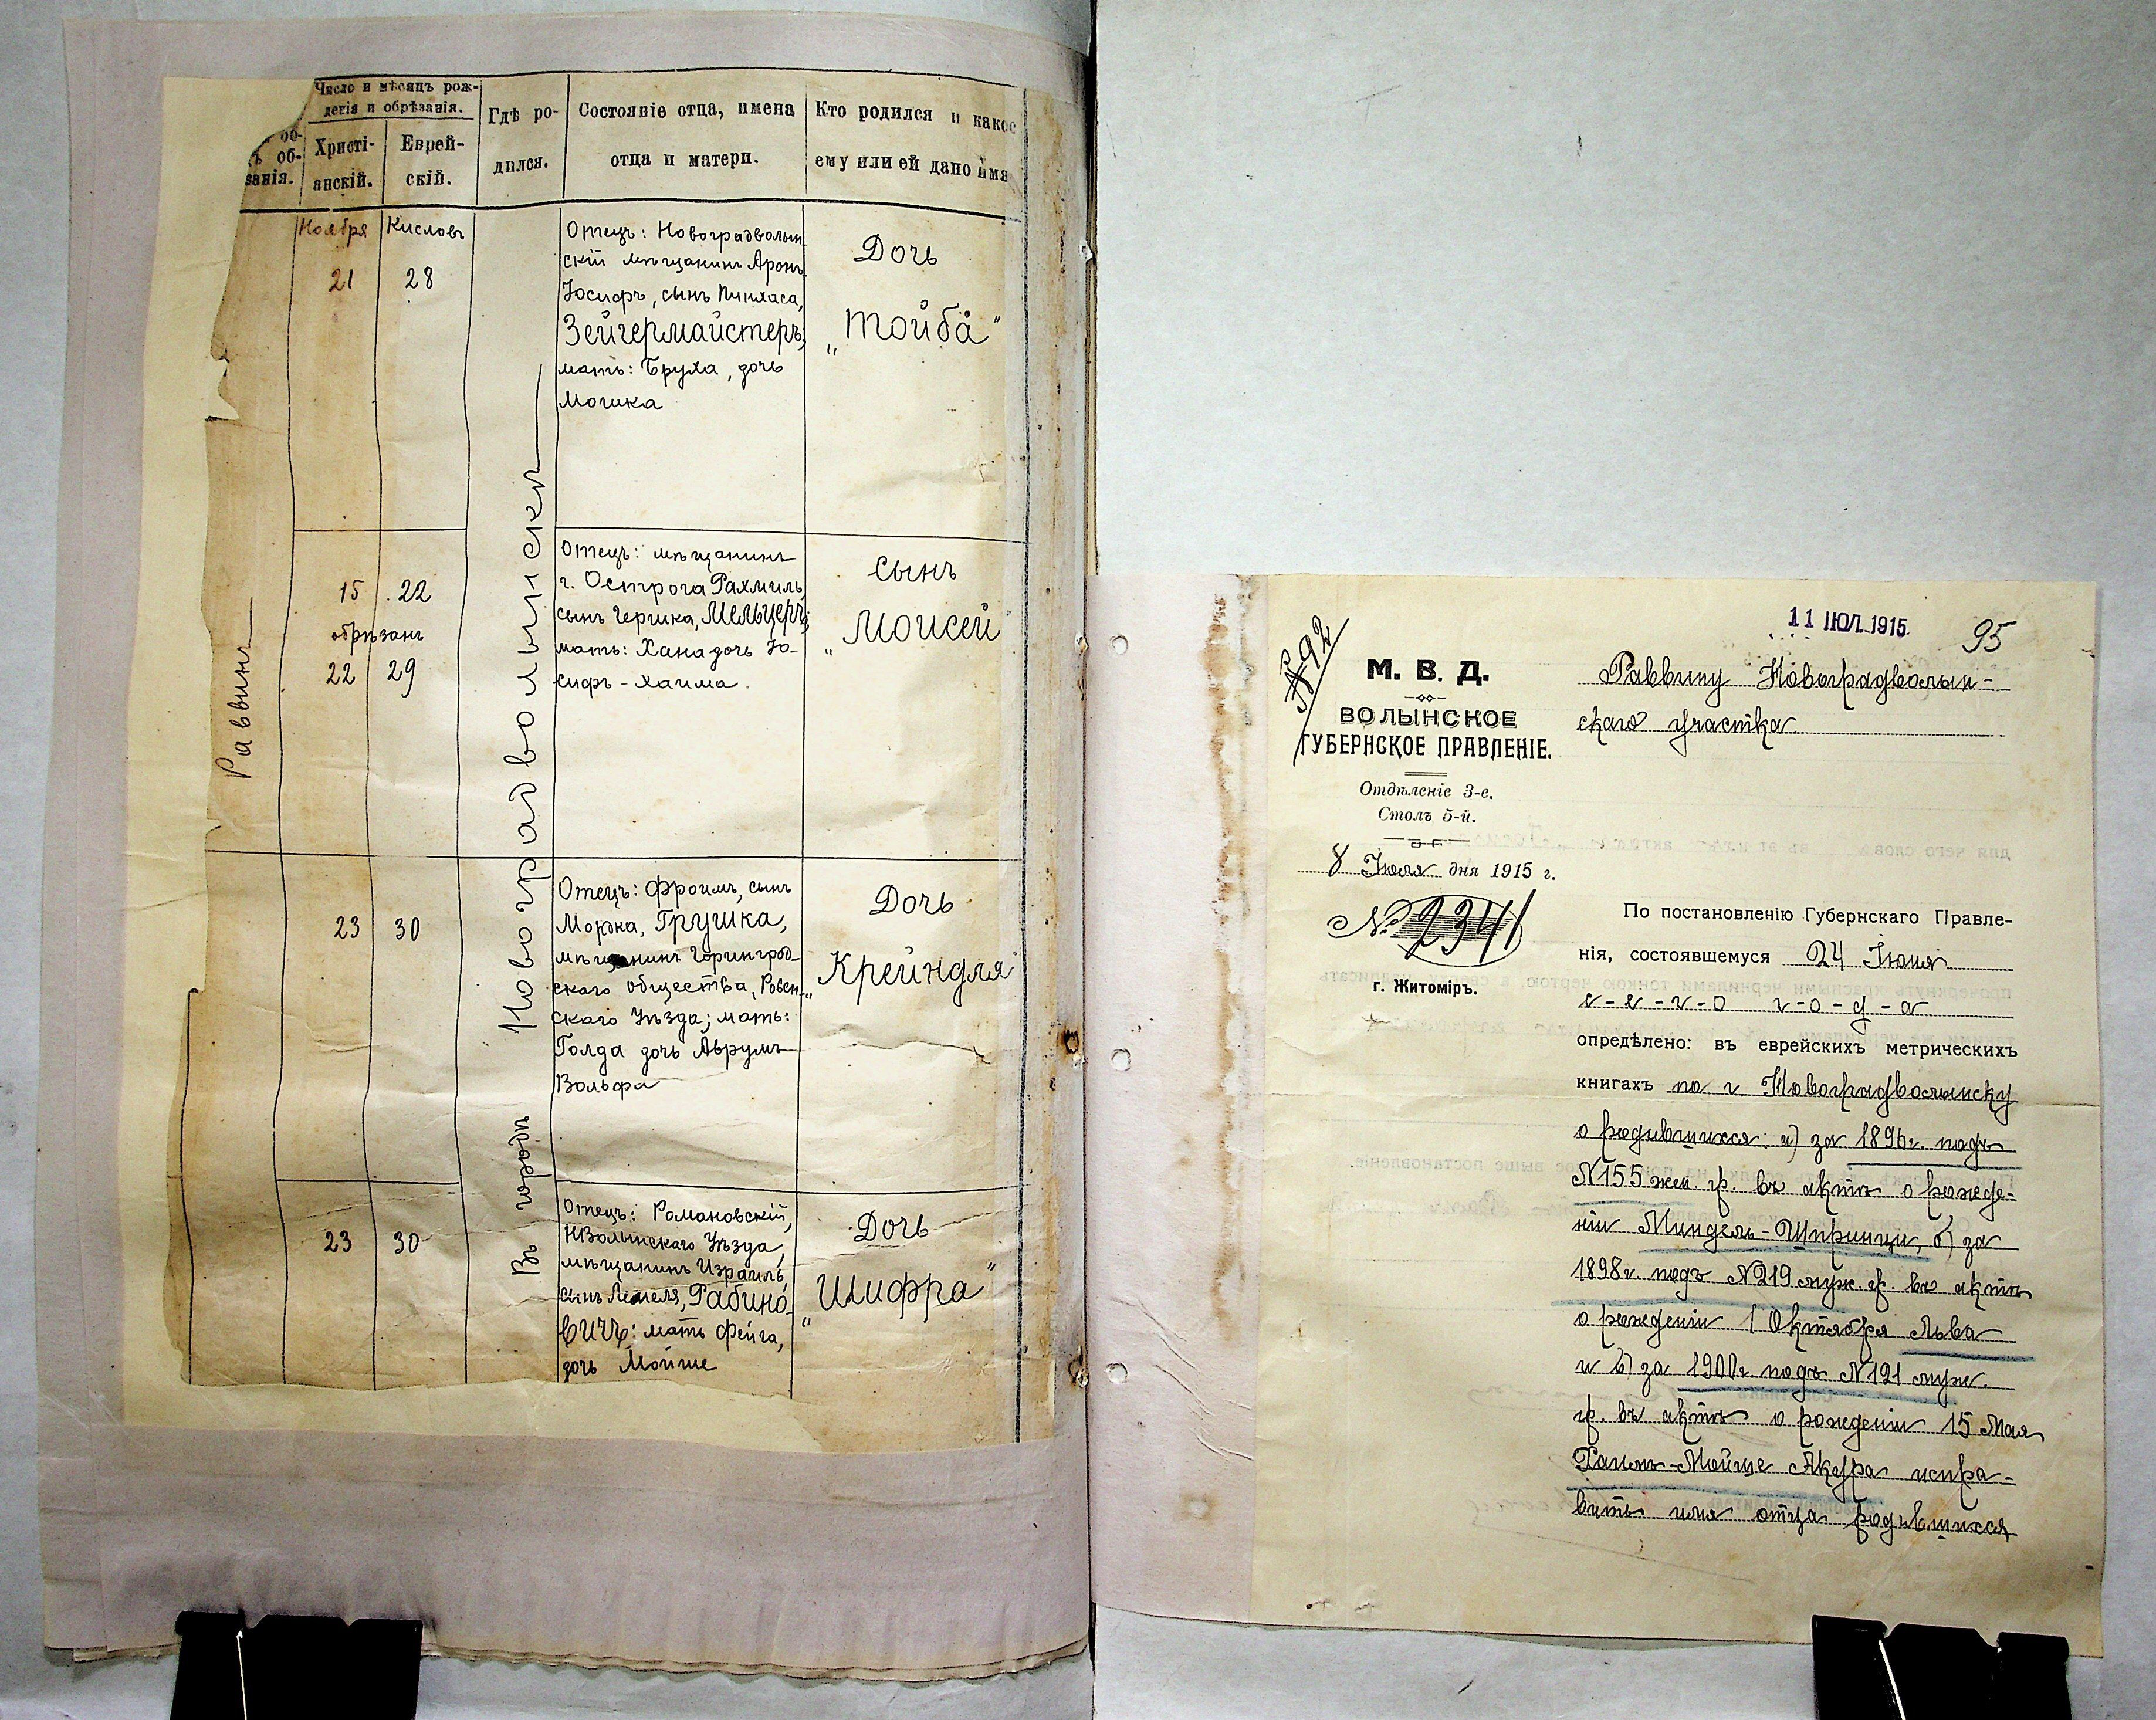 Число и мѣсяцъ рож-
денія и обрѣзанія.
об-
ъ об-
занія.
Христі-
анскій.
Еврей-
скій.
Гдѣ ро-
дился.
Состояніе отца, имена
отца и матери.
Кто родился и какое
ему или ей дано имя
Раввинъ
Въ городѣ Новоградволынскѣ
Ноября
Кисловъ
21
28
Отецъ: Новоградволын-
скій мѣщанинъ Аронъ-
Іосифъ, сынъ Пинхаса,
Зейгермайстеръ;
мать: Бруха, дочь
Мошка
Дочь
„Тойба"
15
22
обрѣзанъ
22
29
Отецъ: мѣщанинъ
г. Острога Рахмиль,
сынъ Гершка, Мельцеръ;
мать: Хана дочь Іо-
сифъ-Хаима.
Сынъ
„Моисей"
23
30
Отецъ: Фроимъ, сынъ
Мордка, Грушка,
мѣщанинъ Горинград-
скаго общества, Ровен-
скаго Уѣзда; мать:
Голда дочь Аврумъ
Вольфа
Дочь
„Крейндля"
23
30
Отецъ: Романовскій,
НВолынскаго Уѣзда,
мѣщанинъ Израиль,
сынъ Лемеля, Рабино-
вичъ: мать Фейга,
дочь Мойше
Дочь
„Шифра"
11 ІЮЛ. 1915
95
№92
М. В. Д.
ВОЛЫНСКОЕ
ГУБЕРНСКОЕ ПРАВЛЕНІЕ.
Отдѣленіе 3-е.
Столъ 5-й.
8 Іюля дня 1915 г.
№ 2341
г. Житоміръ.
Раввину Новоградволын-
скаго участка.
По постановленію Губернскаго Правле-
нія, состоявшемуся 24 Іюня
с-е-г-о г-о-д-а
опредѣлено: въ еврейскихъ метрическихъ
книгахъ по г. Новоградволынску
о родившихся: а) за 1896 г. подъ
№155 жен. гр. въ актѣ о рожде-
ніи Миндель-Ширинци, б) за
1898 г. подъ №219 муж. гр. въ актѣ
о рожденіи 1 Октября Льва
и в) за 1900 г. подъ №121 муж.
гр. въ актѣ о рожденіи 15 Мая
Хаимъ-Мойше Якура испра-
вить имя отца родившихся